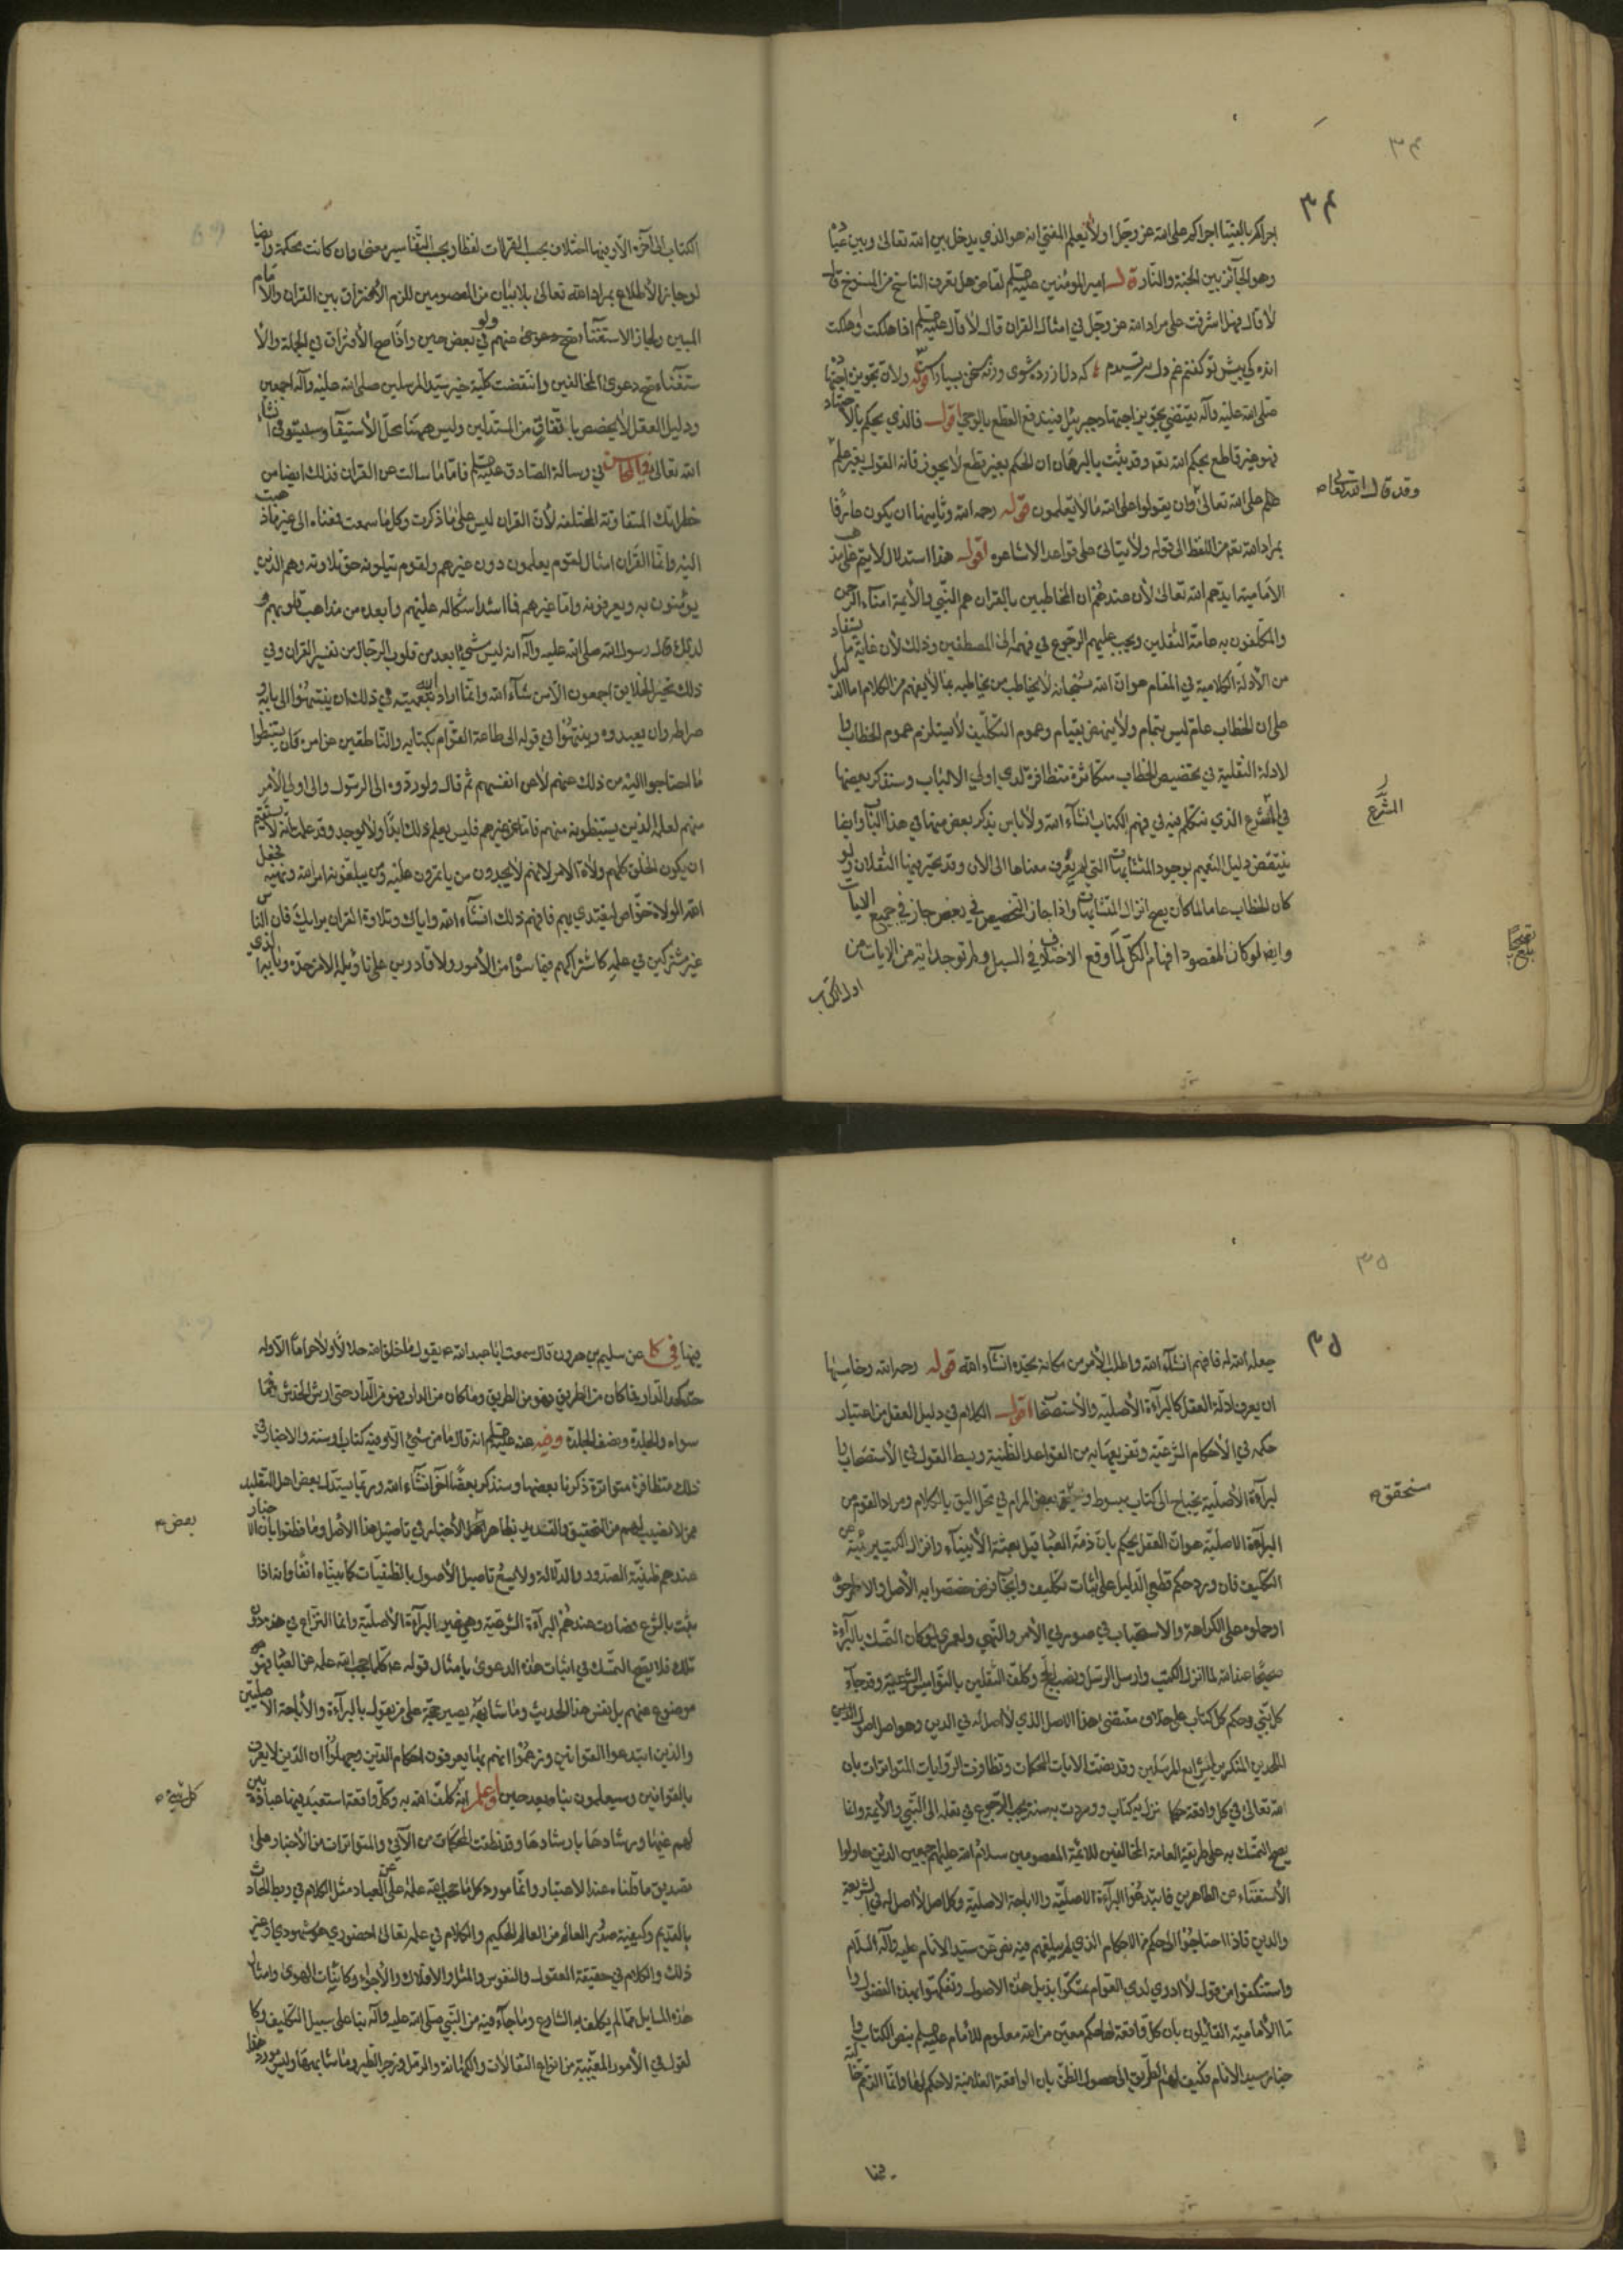 ٣٤
٣٤
اجراكم بالفتيا اجراكم على الله عز وجل اولا يعلم المفتي انه هو الذي يدخل بين الله تعالى وبين عباده
وهو الجائز بين الجنة والنار قال امير المؤمنين عليه السلم لقاض هل تعرف الناسخ من المنسوخ قال
لا قال فهل اشرفت على مراد الله عز وجل في امثال القران قال لا قال عليه السلم اذا هلكت واهلكت
اندكي پيش تو گفتم غم دل ترسيدم كه دل ازرده شوى ورنه سخن بسيار است قوله ولان تجويز اجتهاده
صلى الله عليه وآله يقتضي تجويز اجتهاد جبرئيل فيندفع القطع بالوحي اقول فالذي يحكم بالاجتهاد
فهو غير قاطع بحكم الله تعه وقد ثبت بالبرهان ان الحكم بغير قطع لا يجوز فانه القول بغير علم
وقد قال الله تعالى
على الله تعالى وان يقولوا على الله ما لا يعلمون قوله رحمه الله وثانيها ان يكون عارفا
بمراد الله تعه من اللفظ الى قوله ولا يتاتى على قواعد الاشاعره اقول هذا استدلال لا يتم على مذهب
الامامية ايدهم الله تعالى لان عندهم ان المخاطبين بالقران هم النبي والأئمة امناء الرحمن
والمكلفون به عامة الثقلين ويجب عليهم الرجوع في فهمه الى المصطفين وذلك لان غاية ما يستفاد
من الأدلة الكلامية في المقام هو ان الله سبحانه لا يخاطب من يخاطبه بما لا يفهم من الكلام اما الدليل
على ان الخطاب عام ليس بتمام ولا ينهض بقيام وعموم التكليف لا يستلزم عموم الخطاب والا
لادلة النقلية في تخصيص الخطاب متكاثرة متظافرة لدى اولي الالباب وسنذكر بعضها
في الشرع الذي نتكلم فيه في فهم الكتاب انشاء الله ولا باس بذكر بعض منها في هذا الباب وايضا
الشرع
ينتقض دليل التعميم بوجود المتشابهات التي لم يعرف معناها الى الآن وقد تحير فيها الثقلان ولو
كان الخطاب عاما لما كان يصح انزال المتشابهات واذا جاز التخصيص في بعض جاز في جميع الايات
وايضا لو كان المقصود افهام الكل لما وقع الاختلاف في السبل ولم توجد آية من الايات من
اول الكتاب
الكتاب الى آخره الا وفيها اختلاف بحسب القراءات لفظا وبحسب التفاسير معنى وان كانت محكمة وايضا
لو جاز الاطلاع بمراد الله تعالى بلا بيان من المعصومين للزم الافتراق بين القران والامام
المبين ولجاز الاستغناء ولو صح دعوى عنهم في بعض حين واذا صح الافتراق في الجملة والا
ستغناء صح دعوى المخالفين وانتقضت كلية خبر سيد المرسلين صلى الله عليه وآله اجمعين
ودليل العقل لا يخصص باتفاق من المستدلين وليس ههنا محل الاستيفاء وسيتوفى انشاء
الله تعالى وفي المحاسن في رسالة الصادق عليه السلم فاما ما سالت عن القران فذلك ايضا من
خطراتك المتفاوتة المختلفه لان القران ليس على ما ذكرت وكل ما سمعت فمعناه الى غير ما ذهبت
اليه وانما القران امثال لقوم يعلمون دون غيرهم ولقوم يتلونه حق تلاوته وهم الذين
يؤمنون به ويعرفونه واما غيرهم فما اشد اشكاله عليهم وابعده من مذاهب قلوبهم و
لذلك قال رسول الله صلى الله عليه وآله انه ليس شيء ابعد من قلوب الرجال من تفسير القران وفي
ذلك تحير الخلايق اجمعون الا من شاء الله وانما اراد الله بتعميته في ذلك ان ينتهوا الى بابه و
صراطه وان يعبدوه وينتهوا في قوله الى طاعة القوام بكتابه والناطقين عن امره وان يستنبطوا
ما احتاجوا اليه من ذلك عنهم لا عن انفسهم ثم قال ولو ردوه الى الرسول والى اولي الامر
منهم لعلمه الذين يستنبطونه منهم فاما عن غيرهم فليس يعلم ذلك ابدا ولا يوجد وقد علمت انه لا يستقيم
ان يكون الخلق كلهم ولاة الامر لانهم لا يجدون من يأتمرون عليه ومن يبلغونه امر الله ونهيه فجعل
الله الولاة خواص ليقتدي بهم فافهم ذلك انشاء الله واياك وتلاوة القران برأيك فان الناس
غير مشتركين في علمه كاشتراكهم فيما سواه من الأمور ولا قادرين على تأويله الا من حده وبابه الذي
٣٥
٣٥
جعله الله له فافهم انشاء الله واطلب الأمر من مكانه تجده انشاء الله قوله رحمه الله وخامسها
ان يعرف ادلة العقل كالبراءة الاصلية والاستصحاب اقول الكلام في دليل العقل من اعتبار
حكمه في الاحكام الشرعية وتفريعها به من القواعد الظنية وبسط القول في الاستصحاب والا
لبراءة الأصلية يحتاج الى كتاب مبسوط و بعض المرام في محل اليق بالكلام ومراد القوم من
سنحقق
البراءة الاصلية هو ان العقل يحكم بان ذمة العباد قبل بعثة الأنبياء وانزال الكتب بريئة عن
التكليف فان ورد حكم قطعي الدليل على اثبات تكليف وايجاب فرض خصصوا به الأصل والا طرحوه
او حملوه على الكراهة والاستحباب في صورتي الأمر والنهي ولعمري لو كان التمسك بالبراءة
صحيحا عند الله لما انزل الكتب وارسل الرسل ونصب الحجج وكلف الثقلين بالنواميس الشرعية وقد جاء
كل نبي وحكم كل كتاب على خلاف مقتضى هذا الاصل الذي لا اصل له في الدين وهو اصل اصول الدين
الملحدين المنكرين لشرايع المرسلين وقد نصت الآيات المحكمات وتظافرت الروايات المتواترات بان
الله تعالى في كل واقعة حكما نزل به كتاب ووردت به سنة يجب الرجوع في نقله الى النبي والأئمة وانما
يصح التمسك به على طريقة العامة المخالفين للائمة المعصومين سلام الله عليهم اجمعين الذين حاولوا
الاستغناء عن الطاهرين فابتدعوا البراءة الاصلية والاباحة الاصلية وكل اصل لا اصل له في الشريعة
والدين فاذا احتاجوا الى حكم من الاحكام الذي لم يبلغهم فيه نص عن سيد الانام عليه وآله السلام
واستنكفوا من قول لا ادري لدى العوام تمسكوا بذيل هذه الاصول وتفكهوا بهذه الفضول وا
ما الامامية القائلون بان كل واقعة لها حكم معين من الله معلوم للامام عليه السلم بنص الكتاب وا
خبار سيد الانام فكيف لهم الطريق الى حصول الظن بان الواقعة الفلانية لا حكم لها وانما الذمة خالية
فيها
فيها في كا عن سليم بن هرون قال سمعت ابا عبد الله ع يقول ما خلق الله حلالا ولا حراما الا وله
حد كحد الدار فما كان من الطريق فهو من الطريق وما كان من الدار فهو من الدار حتى ارش الخدش فما
سواه والجلدة ونصف الجلدة وفيه عنه عليه السلم انه قال ما من شيء الا وفيه كتاب او سنة والاخبار في
ذلك متظافرة متواترة ذكرنا بعضها وسنذكر بعضا آخر انشاء الله وربما يستدل بعض اهل التقليد
ممن لا نصيب لهم من التحقيق والتسديد بظاهر بعض الاخبار في تاصيل هذا الاصل وما فطنوا بان الاخبار
بعض
عندهم ظنية الصدور والدلالة ولا يسع تاصيل الأصول بالظنيات كما بيناه آنفا وانه اذا
ثبت بالشرع فصارت عندهم البراءة الشرعية وهي غير البراءة الأصلية وانما النزاع في هذه دون
تلك فلا يصح التمسك في اثبات هذه الدعوى بامثال قوله ع كلما حجب الله علمه عن العباد فهو
موضوع عنهم بل نفس هذا الحديث وما شابهه يصير حجة على من يقول بالبراءة والأباحة الاصليتين
والذين ابتدعوا القوانين وزعموا انهم بها يعرفون احكام الدين وجهلوا ان الدين لا يعرف
بالقوانين وسيعلمون نباه بعد حين واعلم انه كلف الله به وكل واقعة استعبد فيها عباده بين
كل شيء
لهم غيها ورشادها بارشادها وقد نطقت المحكمات من الآي والمتواترات من الأخبار على
تصديق ما قلناه عند الاعتبار وانما مورد كل ما حجب الله علمه عن العباد مثل الكلام في ربط الحادث
بالقديم وكيفية صدور العالم من العالم الحكيم والكلام في علمه تعالى احضوري هو شهودي او غير
ذلك والكلام في حقيقة العقول والنفوس والمثل والافلاك والاجواء وكائنات الهوى وامثال
هذه المسايل مما لم يكلف به الشارع وما جاء فيه من النبي صلى الله عليه وآله بنا على سبيل التكليف وكا
لقول في الأمور المغيبة من انواع التفالات والكهانة والرمل وزجر الطير وما شابهها وليس مورد هذا